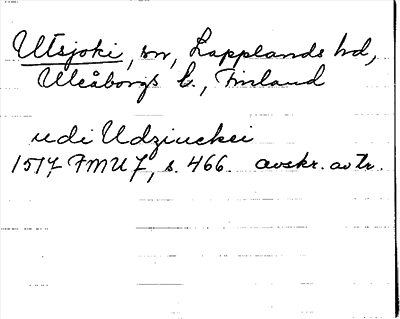 Utsjoki, sn, Lapplands hd,
Uleåborgs l., Finland
udi Udziuckei
1517 FMU 7, s. 466. avskr. av tr.